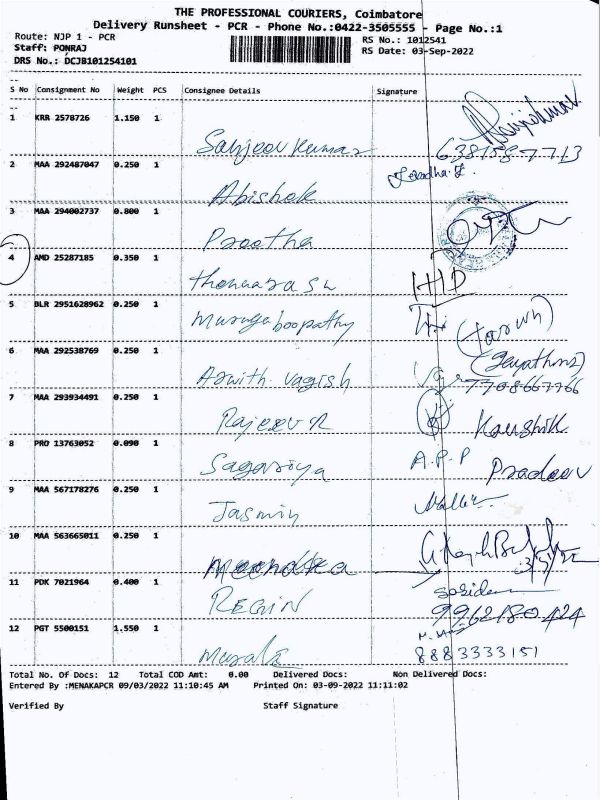 THE PROFESSIONAL COURIERS, Coimbatore
Delivery Runsheet - PCR - Phone No.:0422-3505555 - Page No.:1
Route: NJP 1 - PCR
RS No.: 1012541
Staff: PONRAJ
RS Date: 03-Sep-2022
DRS No.: DCJB101254101
S No Consignment No Weight PCS Consignee Details Signature
1 KRR 2578726 1.150 1
Sanjeev Kumar 6381587713
2 MAA 292487047 0.250 1
Abishek
3 MAA 294002737 0.800 1
Preetha
4 AMD 25287185 0.350 1
Thennarasu
5 BLR 2951628962 0.250 1
Murugaboopathy (Tarun)
6 MAA 292538769 0.250 1
Aswith. Vagish 7708667766
7 MAA 293934491 0.250 1
Rajeev R Kaushik
8 PRO 13763052 0.090 1
Sagariya A.P.P Pradeev
9 MAA 567178276 0.250 1
Jasmin
10 MAA 563665011 0.250 1
11 PDK 7021964 0.400 1
REGIN 9962180424
12 PGT 5500151 1.550 1
Murali 8883333151
Total No. Of Docs: 12 Total COD Amt: 0.00 Delivered Docs: Non Delivered Docs:
Entered By :MENAKAPCR 09/03/2022 11:10:45 AM Printed On: 03-09-2022 11:11:02
Verified By Staff Signature